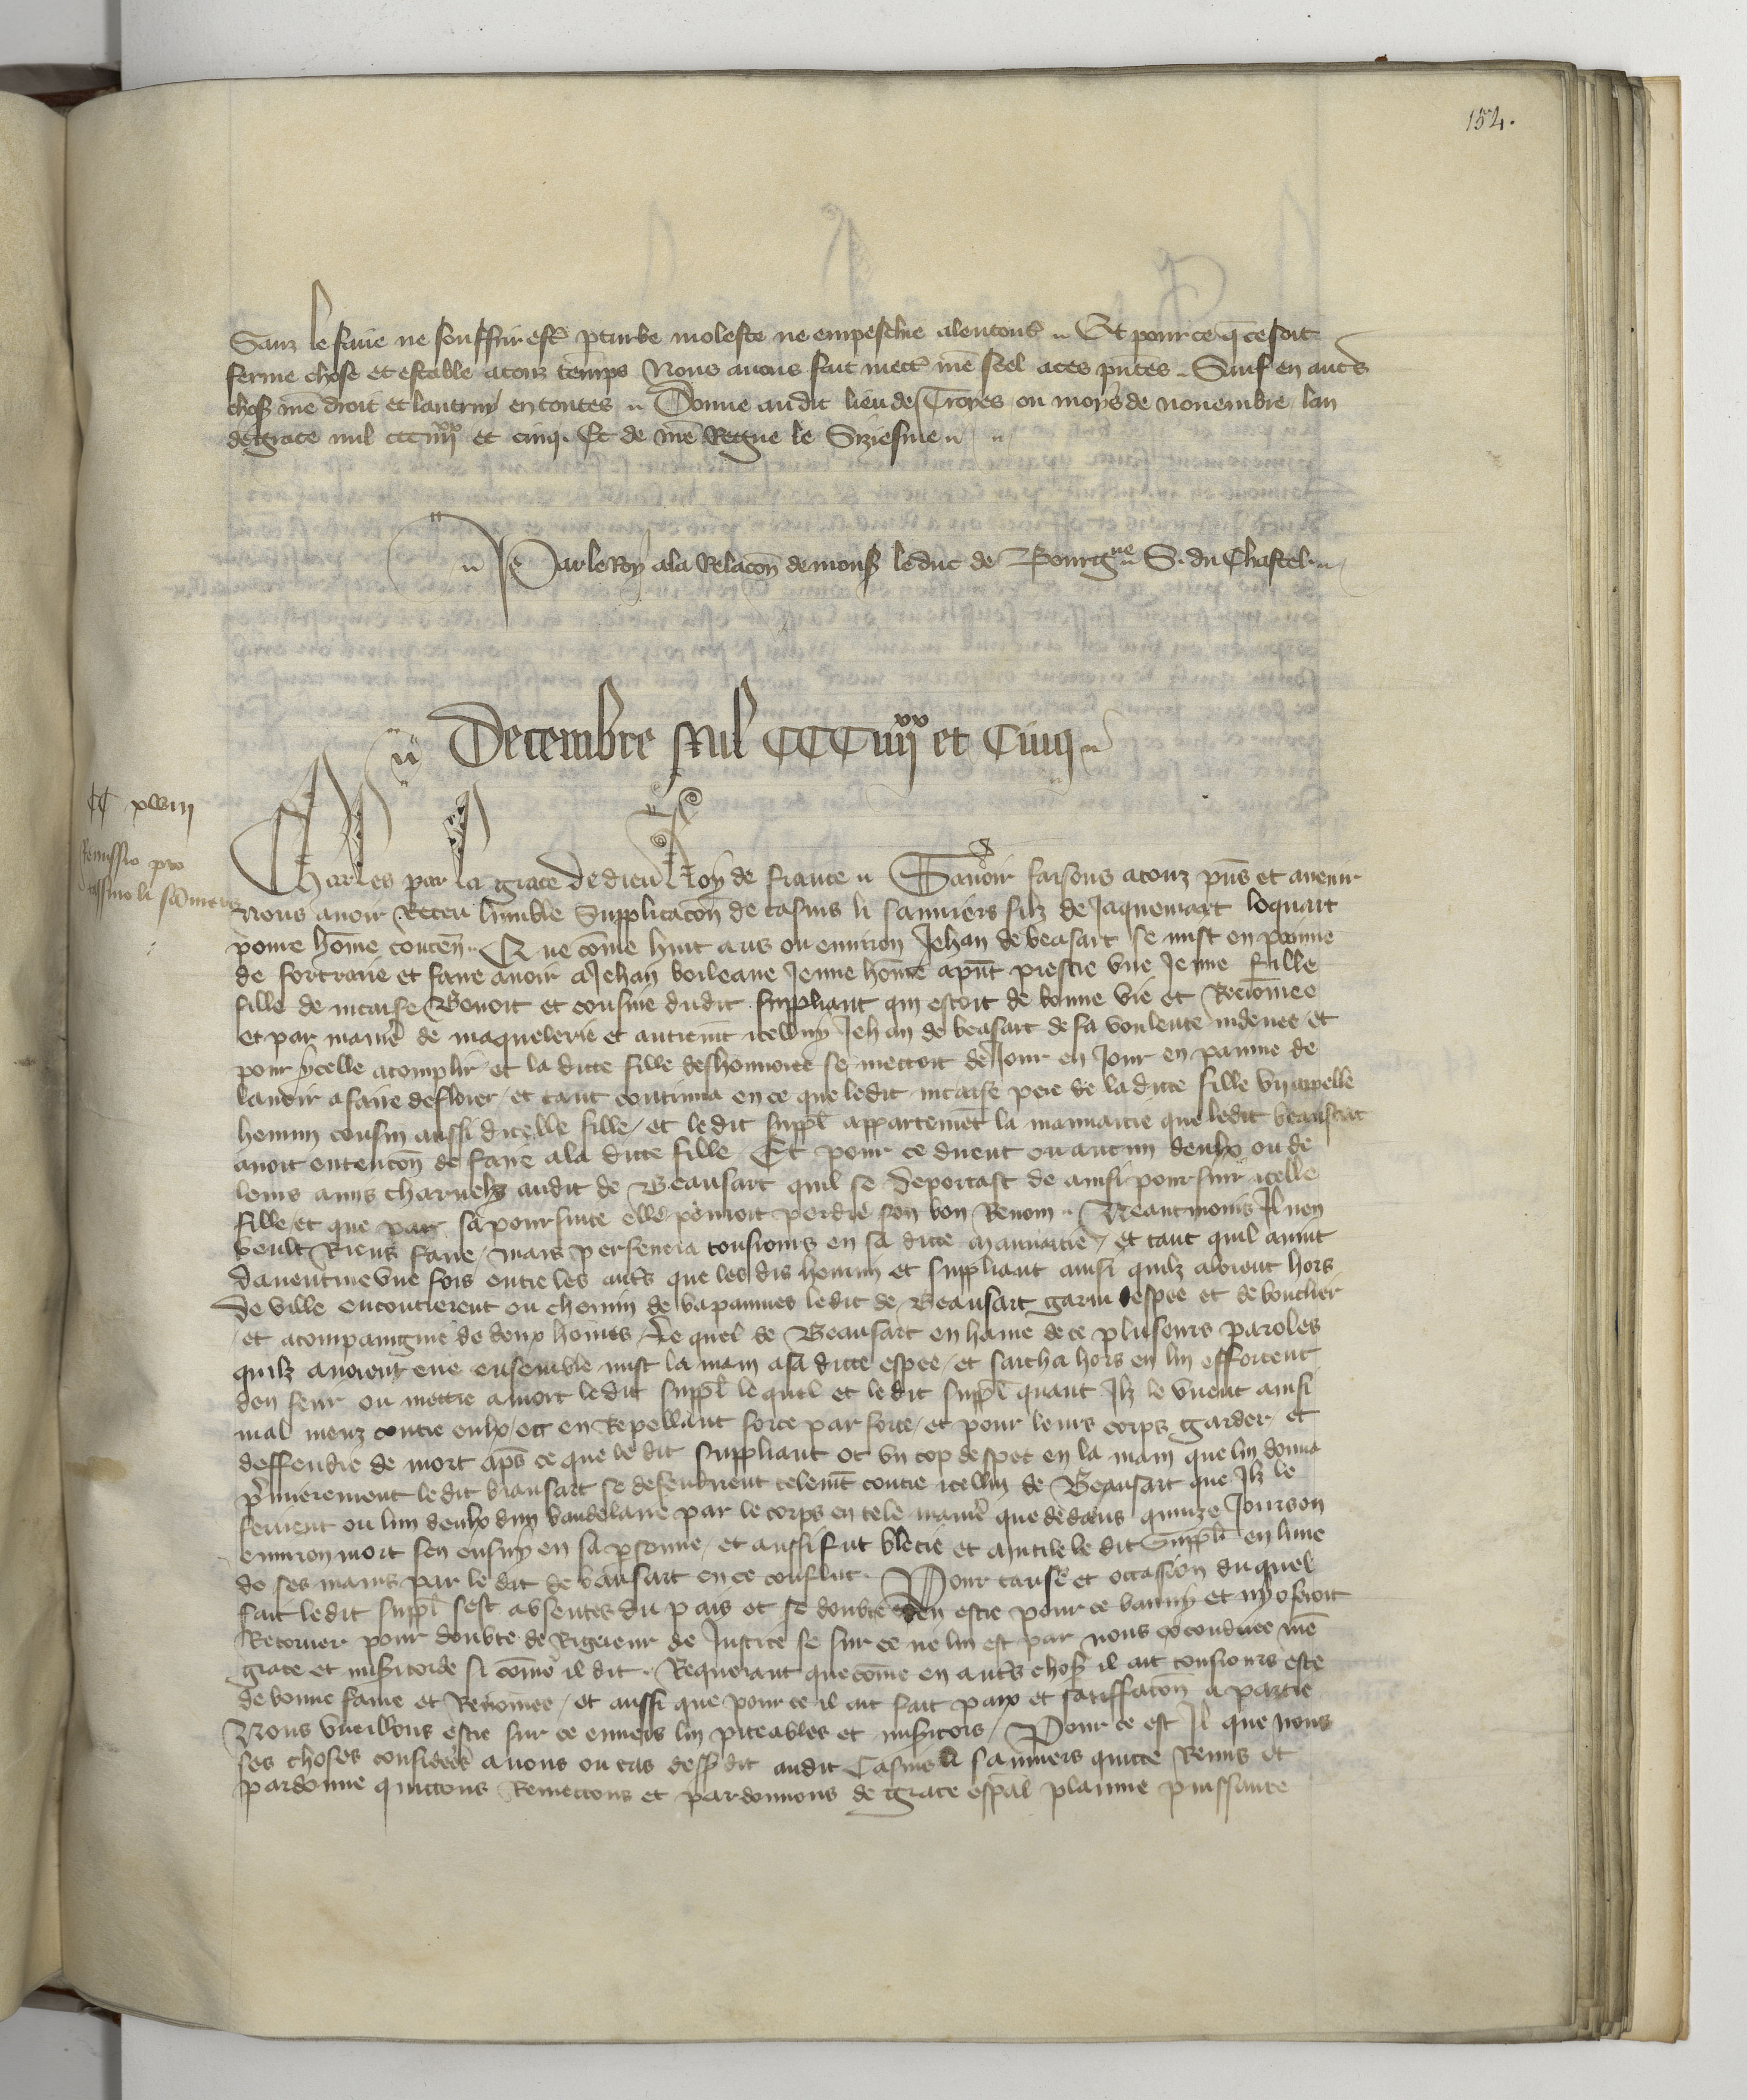 154.
Sanz le faire ne souffrir estre pturbe moleste ne empeschie alencontre Et pour ce q ce soit
ferme chose et estable atouz temps Nous avons fait mectre nre seel a ces pntes Sauf en autres
choses nre droit et lautruy en toutes Donne audit lieu de Troyes ou moys de novembre lan
de grace mil ccc iiij xx et cinq. Et de nre Regne le Siziesme
Par le Roy a la Relacon de mons le duc de Bourgne S. du Chastel
Decembre Mil CCC iiij xx et Cinq
CC xviij
Remissio pro
Cassino li sanniers
Charles par la grace de dieu Roy de france Savoir faisons atouz pns et avenir
Nous avoir Receu humble Supplicacon de casins li sanniers filz de Jaquemart loquart
povre home conten Que come huit ans ou environ Jehan de beasart se mist en painne
de fortraire et faire avoir a Jehan boileaue Jenne home apnt prestre une Jenne fille
fille de Benoit et cousine dudit suppliant qui estoit de bonne vie et Renomee
et par maniere de maquelerie et autremt icelluy Jehan de beasart de sa voulente indeuee et
pour ycelle acomplir et la dicte fille deshonnorer se mettoit de Jour en Jour en painne de
lavoir a faire deflorer et tant continua en ce que ledit pere de la dicte fille un appelle
hennin cousin aussi dicelle fille et ledit suppl apparceurent la mauvaitie que ledit beausart
avoit entencon de faire a la dicte fille Et pour ce dirent ou aucun deulx ou de
leurs amis charnelz audit de Beausart quil se deportast de ainsi poursuir icelle
fille et que par sa poursuite elle pourroit perdre son bon Renom Neantmoins Il nen
voult Riens faire mais persevera tousiours en sa dicte mauvaitie et tant quil avint
daventure une fois entre les autres que les dis hennin et suppliant ainsi quilz aloient hors
de ville encontrerent ou chemin de bapaumes ledit de Beausart garni despee et de bouclier
et acompaingnie de deux homes Le quel de Beausart en haine de ce pluseurs paroles
quilz avoient eue ensemble mist la main a sa dicte espee et sacha hors en lui efforcent
den ferir ou mettre a mort ledit suppl le quel et ledit suppl quant Ilz le virent ainsi
mal meuz contre eulx et en Repellant force par force et pour leurs corps garder et
deffendre de mort aps ce que le dit suppliant ot un cop despee en la main que lui donna
premierement ledit biausart se defendirent telemt contre icellui de Beausart que Ilz le
ferirent ou lun deulx dun baudelaire par le corps en tele maniere que dedens quinze Jours ou
environ mort sen ensuy en sa psonne et aussi fut blecie et le dit Suppl en lune
de ses mains par le dit de beausart en ce conflict. Pour cause et occasion du quel
fait ledit suppl sest absentes du pais et se doubte den estre pour ce banny et ny oseroit
Retorner pour doubte de Rigueur de Justice se sur ce ne lui est par nous nre
grace et misericorde si come il dit. Requerant que come en autres choses il ait tousiours este
de bonne fame et Renomee et aussi que pour ce il ait fait paix et satiffacon a partie
Nous vueillons estre sur ce envers lui piteables et misericors Pour ce est Il que nous
ses choses considerees avons ou cas dessus dit audit Casin li sanniers quitte Remis et
pardonne quittons Remettons et pardonnons de grace espal plainne puissance